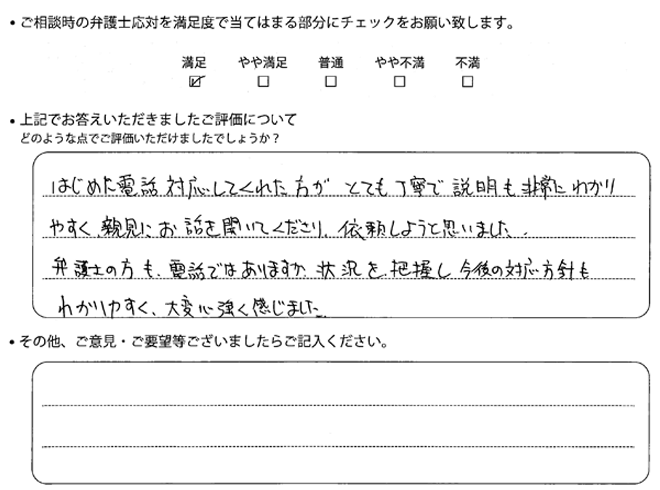 • ご相談時の弁護士応対を満足度で当てはまる部分にチェックをお願い致します。
満足 やや満足 普通 やや不満 不満
☑ □ □ □ □
• 上記でお答えいただきましたご評価について
どのような点でご評価いただけましたでしょうか？
はじめた電話対応してくれた方がとても丁寧で説明も非常にわかり
やすく、親見にお話を聞いてくださり、依頼しようと思いました。
弁護士の方も、電話ではありますが、状況を把握し今後の対応方針も
わかりやすく、大変心強く感じました。
• その他、ご意見・ご要望等ございましたらご記入ください。